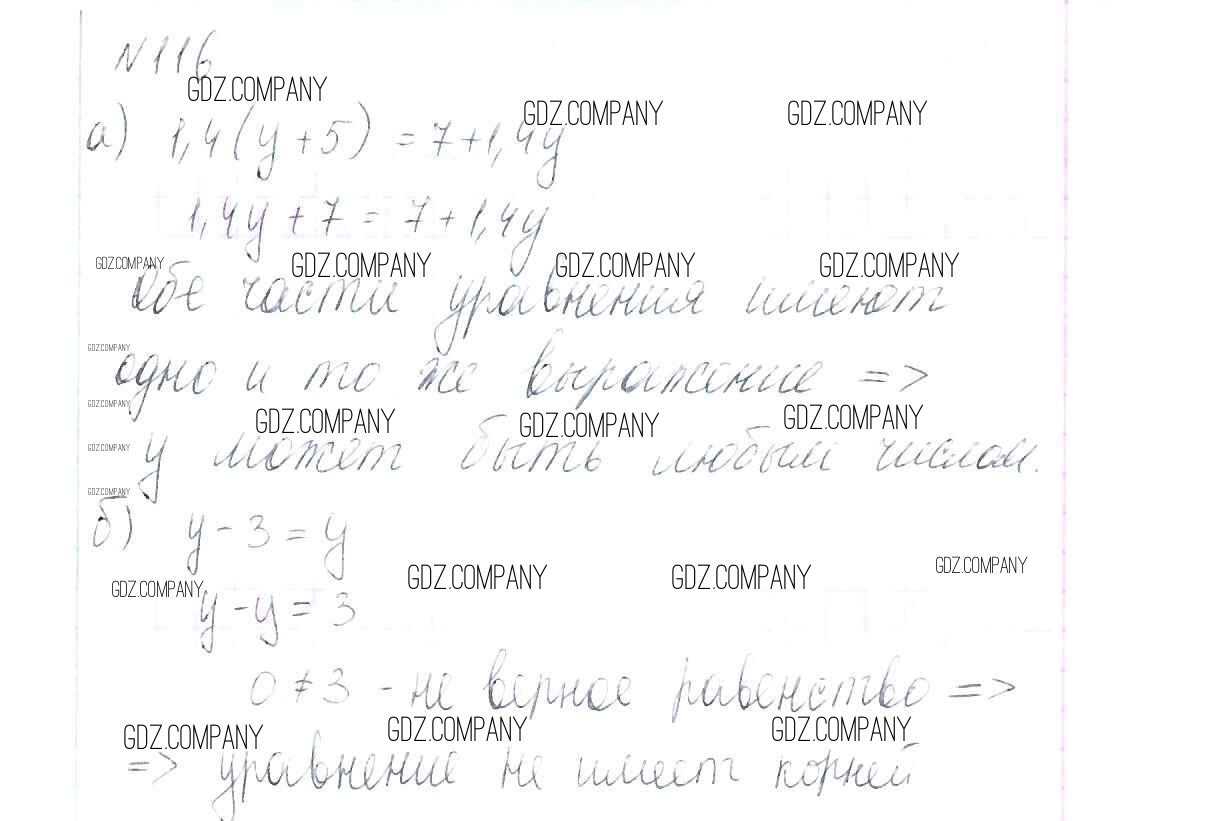 N116
GDZ.COMPANY
GDZ.COMPANY GDZ.COMPANY
а) 1,4(y+5) = 7+1,4y
1,4y+7 = 7+1,4y
GDZ.COMPANY GDZ.COMPANY GDZ.COMPANY GDZ.COMPANY
Обе части уравнения имеют
GDZ.COMPANY
одно и то же выражение =>
GDZ.COMPANY
GDZ.COMPANY GDZ.COMPANY GDZ.COMPANY
GDZ.COMPANY
y может быть любым числом.
GDZ.COMPANY
б) y-3=y
GDZ.COMPANY GDZ.COMPANY GDZ.COMPANY GDZ.COMPANY
y-y=3
0≠3 - не верное равенство =>
GDZ.COMPANY GDZ.COMPANY GDZ.COMPANY
=> уравнение не имеет корней